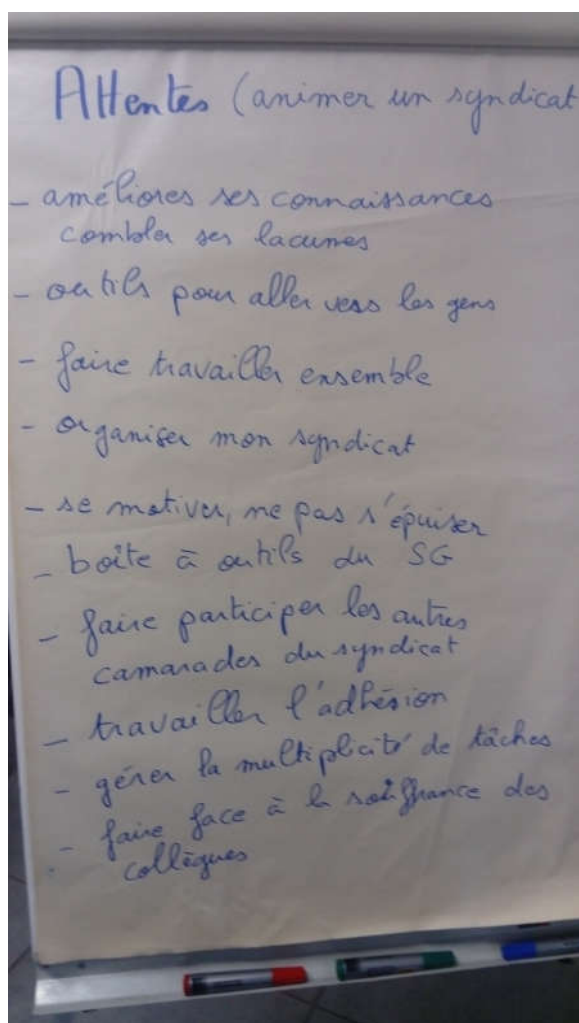 Attentes (animer un syndicat
- améliorer ses connaissances
combler ses lacunes
- outils pour aller vers les gens
- faire travailler ensemble
- organiser mon syndicat
- se motiver, ne pas s'épuiser
- boîte à outils du SG
- faire participer les autres
camarades du syndicat
- travailler l'adhésion
- gérer la multiplicité de tâches
- faire face à la souffrance des
collègues